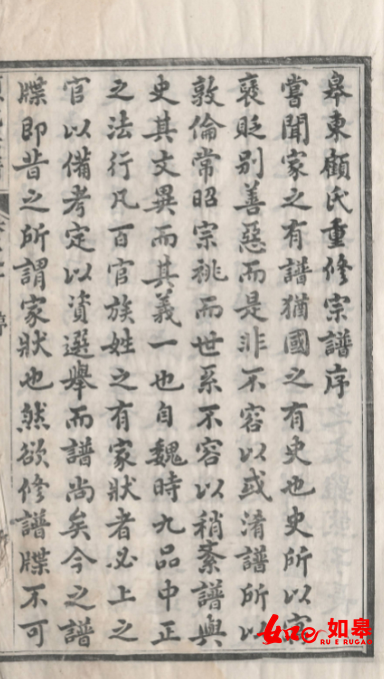 皋東顧氏重修宗譜序
嘗聞家之有譜猶國之有史也史所以寓
褒貶别善惡而是非不容以或淆譜所以
敦倫常昭宗祧而世系不容以稍紊譜與
史其文異而其義一也自魏時九品中正
之法行凡百官族姓之有家狀者必上之
官以備考定以資選舉而譜尚矣今之譜
牒即昔之所謂家狀也然欲修譜牒不可
如皋
RU E RUGAO